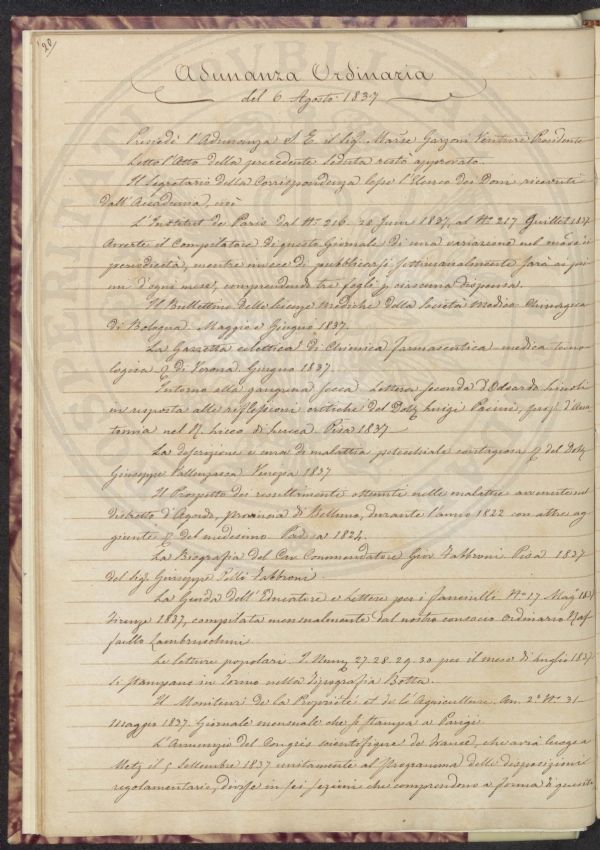 20/
Adunanza Ordinaria
del 6. Agosto 1837
Presiedè l'Adunanza S. E. il Sig. March.e Garzoni Venturi Presidente
Letto l'Atto della precedente seduta restò approvato.
Il Segretario della Corrispondenza lesse l'Elenco dei Doni ricevuti
dall'Accademia, cioè
L'Institut de Paris dal N.° 216. 28 Juin 1837, al N.° 217 Juillet 1837
Avverte il Compilatore di questo Giornale di una variazione nel modo di
periodicità, mentre invece di pubblicarsi settimanalmente sarà ai pri-
mi d'ogni mese, comprendendo tre fogli p. ciascuna dispensa.
Il Bullettino delle Scienze Mediche della Società Medico-Chirurgica
di Bologna. Maggio e Giugno 1837.
La Gazzetta eclettica di Chimica farmaceutica medica tecno-
logica & di Verona. Giugno 1837.
Intorno alla gangrena secca. Lettera seconda d'Edoardo
in risposta alle riflessioni critiche del Dott. Luigi Pacini, prof. d'Ana-
tomia nel R. Liceo di Lucca. Pisa 1837
La descrizione e cura di malattia pestilenziale contagiosa & del Dott.
Giuseppe Pallenzasca Venezia 1837
Il Prospetto dei resultamenti ottenuti nelle malattie avvenute nel
distretto d'Agordo, provincia di Belluno, durante l'anno 1822 con altre ag-
giunte & del medesimo. Padova 1824.
La Biografia del Cav. Commendatore Giov. Fabbroni. Pisa 1837
del Sig. Giuseppe Pelli Fabbroni.
La Guida dell'Educatore e Letture per i fanciulli N.° 17 Mag.o 1837
Firenze 1837, compilata mensualmente dal nostro consocio Ordinario Raf-
faello Lambruschini
Le letture popolari. I Num. 27. 28. 29. 30 per il mese di Luglio 1837
si stampano in Torino nella Tipografia Botta.
Il Moniteur de la Propriété et de l'Agriculture. An. 2.° N.° 31
Maggio 1837. Giornale mensuale che si stampa a Parigi
L'Annunzio del Congrès scientifique de France, che avrà luogo a
Metz il 5 Settembre 1837 unitamente al Programma delle disposizioni
regolamentarie, divise in sei sezioni che comprendono a forma di quesiti